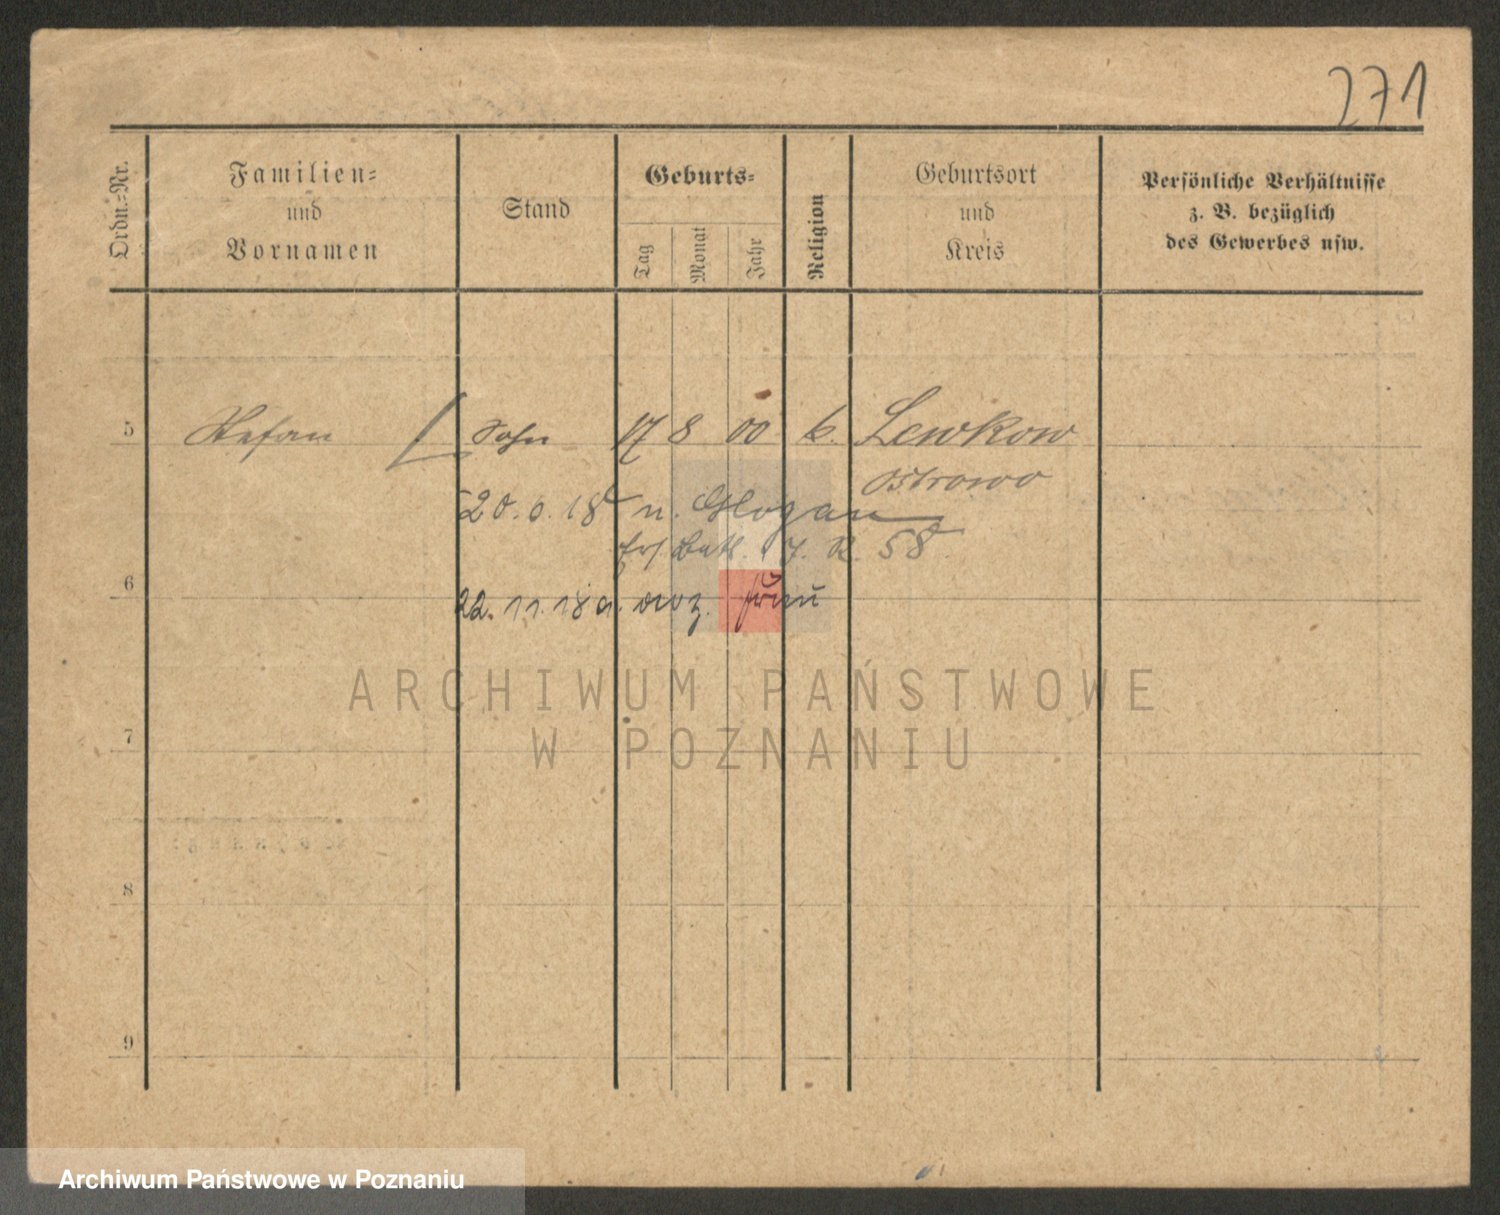 271
Ordn.-Nr.
Familien-
und
Vornamen
Stand
Geburts-
Tag
Monat
Jahr
Religion
Geburtsort
und
Kreis
Persönliche Verhältnisse
z. B. bezüglich
des Gewerbes usw.
5 Stefan Sohn 17 8 00 k. Lewkow
Ostrowo
20.6.18 n. Glogau
Ers. Batl. 58
6
22. 11. 18 a.
ARCHIWUM PAŃSTWOWE
W POZNANIU
7
8
9
Archiwum Państwowe w Poznaniu